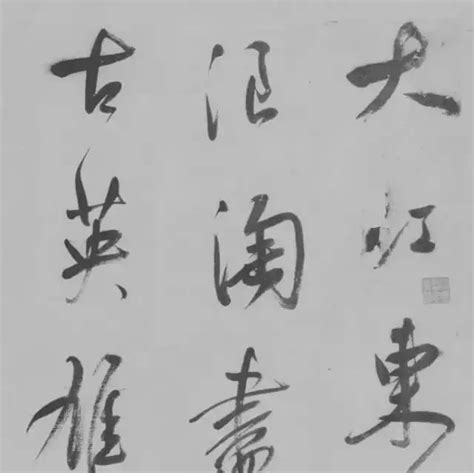 大江東
浪淘盡
古英雄